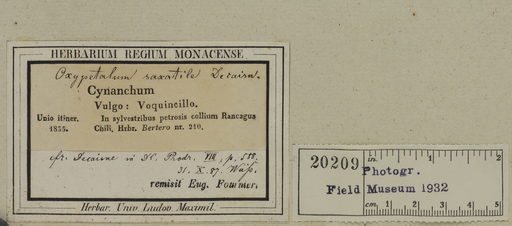 HERBARIUM REGIUM MONACENSE.
Oxypetalum saxatile Decaisn.
Cynanchum
Vulgo: Voquincillo.
Unio itiner. In sylvestribus petrosis collium Rancagua
1835. Chili, Hrbr. Bertero nr. 210.
cfr. Decaisne in DC. Prodr. VIII, p. 588.
31. X. 87.
remisit Eug. Fournier.
Herbar. Univ. Ludov. Maximil.
20209
in. 1 2
Photogr.
Field Museum 1932
cm 1 2 3 4 5